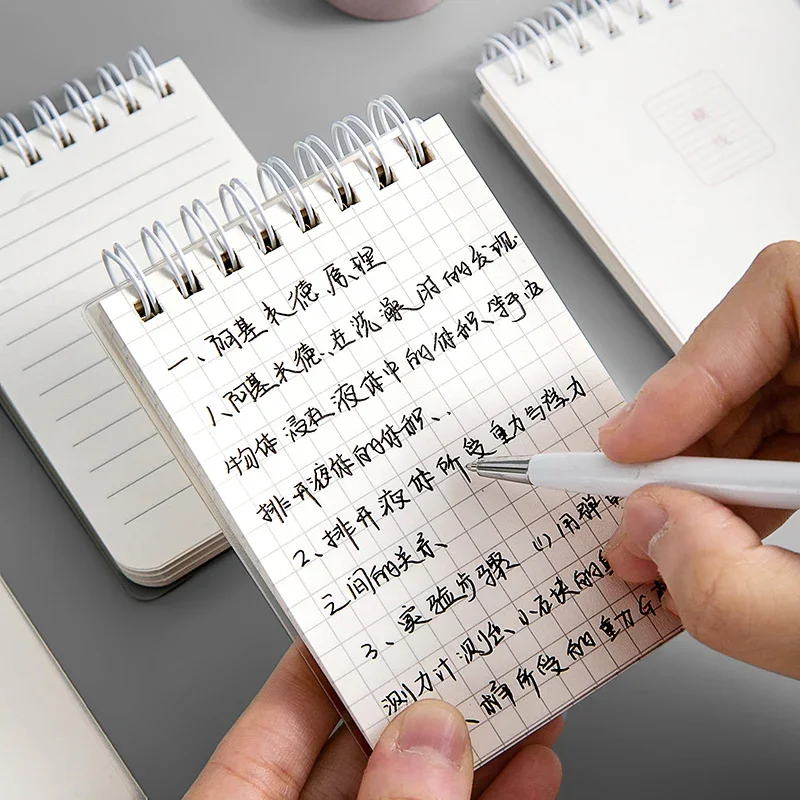 一、阿基米德原理
1、阿基米德、在洗澡时的发现
物体浸在液体中的体积、等于它
排开液体的体积、.
2、排开液体所受重力与浮力
之间的关系、
3、实验步骤 (1)用弹
测力计测出、小石块的重
、桶所受的重力G